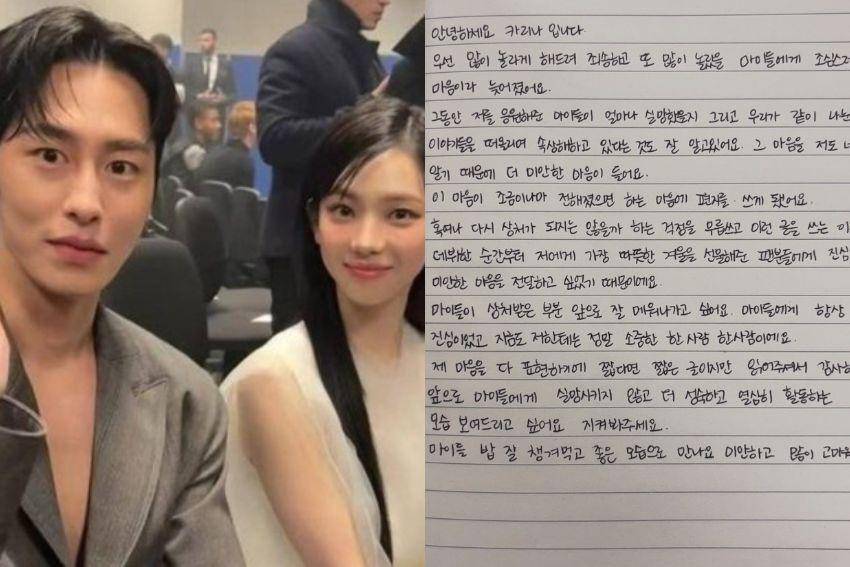 안녕하세요 카리나 입니다
우선 많이 놀라게 해드려 죄송하고 또 많이 놀랐을 마이들에게 조심스러
마음이라 늦어졌어요.
그동안 저를 응원해준 마이들이 얼마나 실망했을지 그리고 우리가 같이 나눈
이야기들을 떠올리며 속상해하고 있다는 것도 잘 알고있어요. 그 마음을 저도
알기 때문에 더 미안한 마음이 들어요.
이 마음이 조금이나마 전해졌으면 하는 마음에 편지를 쓰게 됐어요.
혹여나 다시 상처가 되지는 않을까 하는 걱정을 무릅쓰고 이런 글을 쓰는 이
데뷔한 순간부터 저에게 가장 따뜻한 겨울을 선물해준 팬분들에게 진심
미안한 마음을 전달하고 싶었기 때문이에요.
마이들이 상처받은 부분 앞으로 잘 메워나가고 싶어요. 마이들에게 항상
진심이었고 지금도 저한테는 정말 소중한 한 사람 한사람이에요.
제 마음을 다 표현하기에 짧다면 짧은 글이지만 읽어주셔서 감사하
앞으로 마이들에게 실망시키지 않고 더 성숙하고 열심히 활동하는
모습 보여드리고 싶어요 지켜봐주세요.
마이들 밥 잘 챙겨먹고 좋은 모습으로 만나요 미안하고 많이 고마워